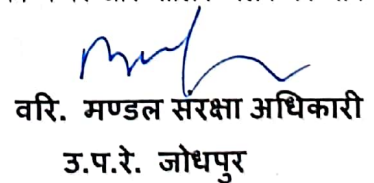 वरि. मण्डल संरक्षा अधिकारी
उ.प.रे. जोधपुर